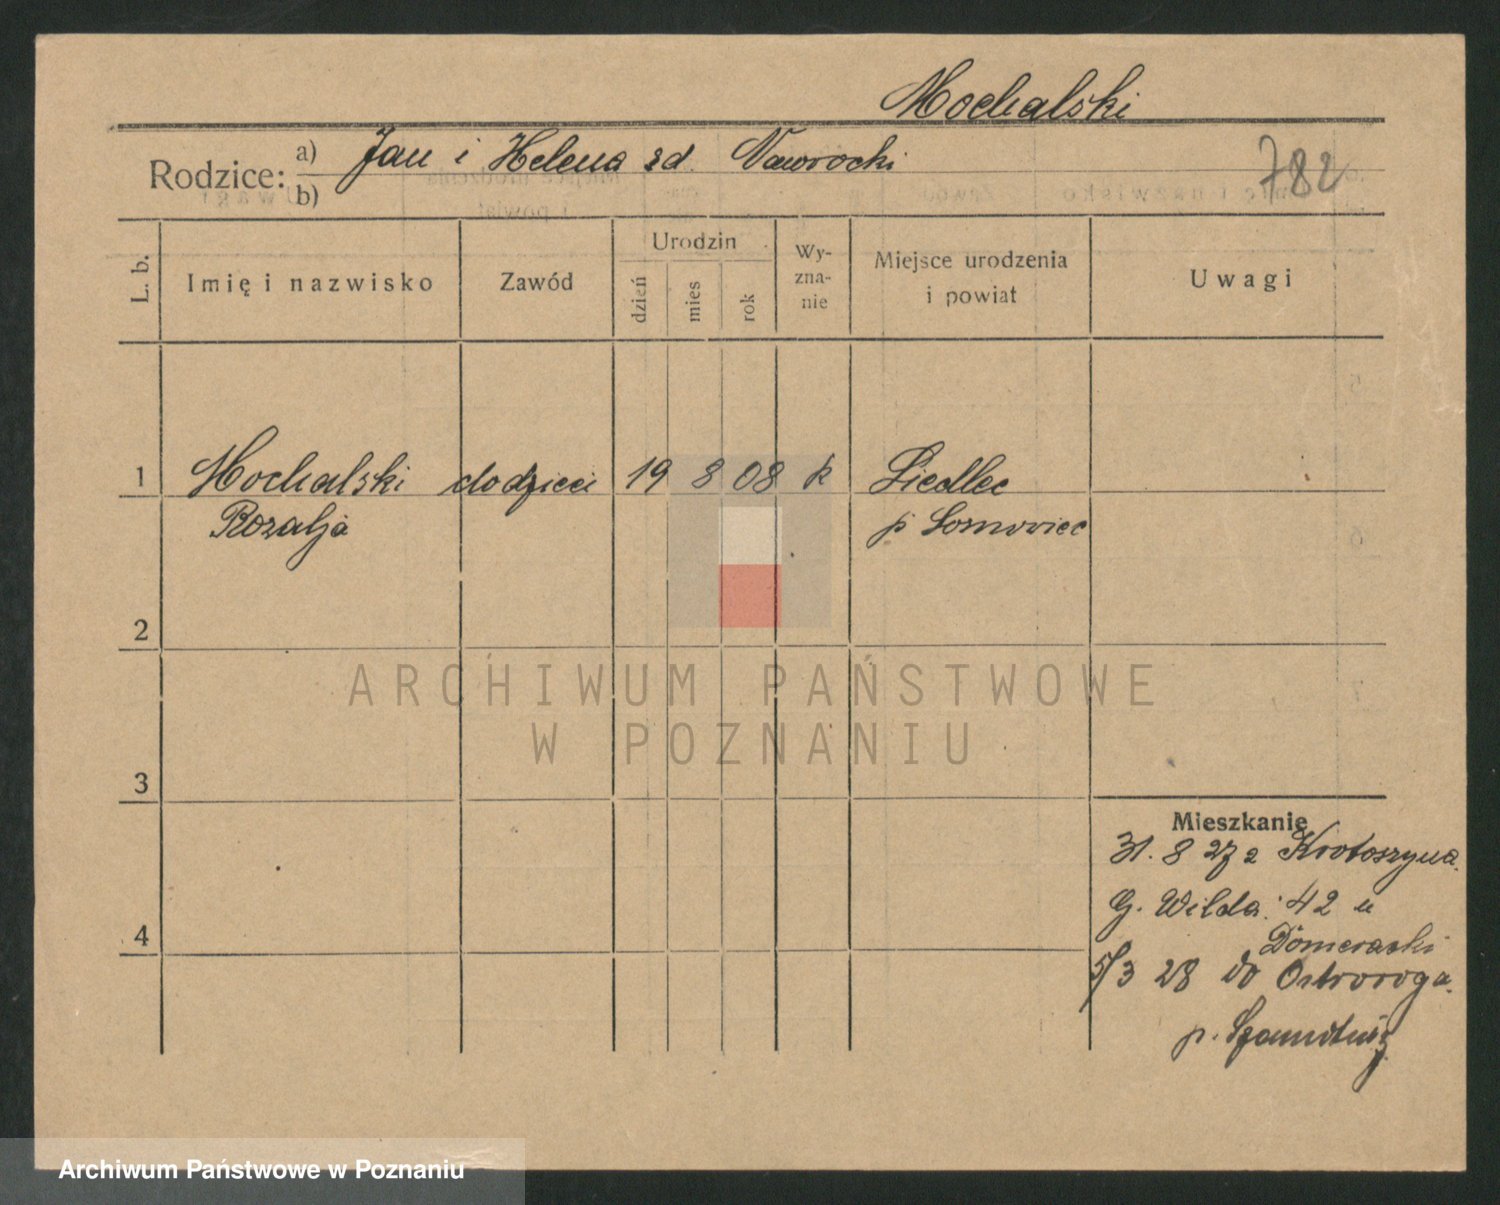 Mochalski
Rodzice: a) Jan i Helena zd. Nawrocki
b)
782
L. b.
Imię i nazwisko
Zawód
Urodzin
dzień
mies
rok
Wy-
zna-
nie
Miejsce urodzenia
i powiat
Uwagi
1 Mochalski do dzieci 19 8 08 k Siedlec
Rozalja p Sosnowiec
2
3
4
Mieszkanie
31. 8 27 z Krotoszyna
G. Wilda 42 u
Domeracki
5/3 28 do Ostroroga
p.
ARCHIWUM PAŃSTWOWE
W POZNANIU
Archiwum Państwowe w Poznaniu